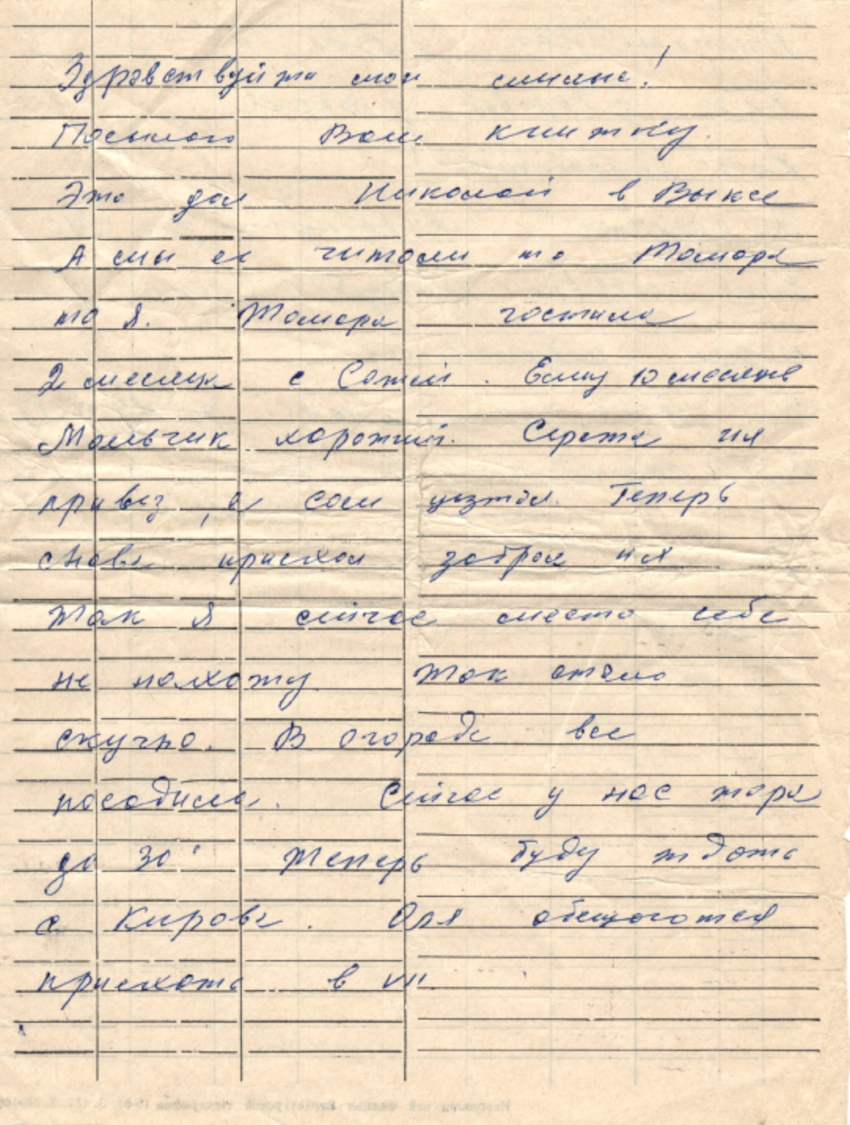 Здравствуйте мои милые!
Посылаю Вам книжку.
Это дал Николай в Выксе
А мы ее читали то Тамара
то я. Тамара гостила
2 месяца с Сашей. Ему 10 месяцев
Мальчик хороший. Сережа их
привез, а сам уезжал. Теперь
снова приехал забрал их
Так я сейчас место себе
не нахожу. Так стало
скучно. В огороде все
посадила. Сейчас у нас жара
до 30° Теперь буду ждать
с Кирова. Оля обещается
приехать в VII.